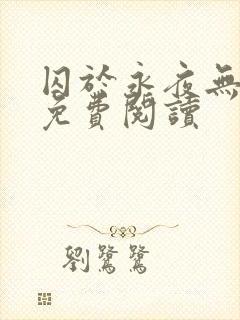 囚於永夜無
免費閱讀
劉鷺鷺